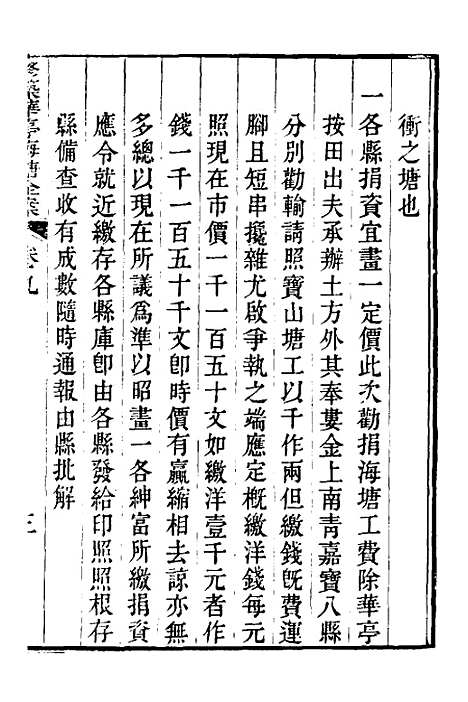 衝之塘也
一各縣捐資宜畫一定價此次勸捐海塘工費除華亭
按田出夫承辦土方外其奉婁金上南青嘉寶八縣
分別勸輸請照寶山塘工以千作兩但繳錢旣費運
腳且短串攙雜尤啟爭執之端應定槪繳洋錢每元
照現在市價一千一百五十文如繳洋壹千元者作
錢一千一百五十千文卽時價有贏縮相去諒亦無
多總以現在所議爲準以昭畫一各紳富所繳捐資
應令就近繳存各縣庫卽由各縣發給印照照根存
縣備查收有成數隨時通報由縣批解
修築華亭海塘全案
卷九
三